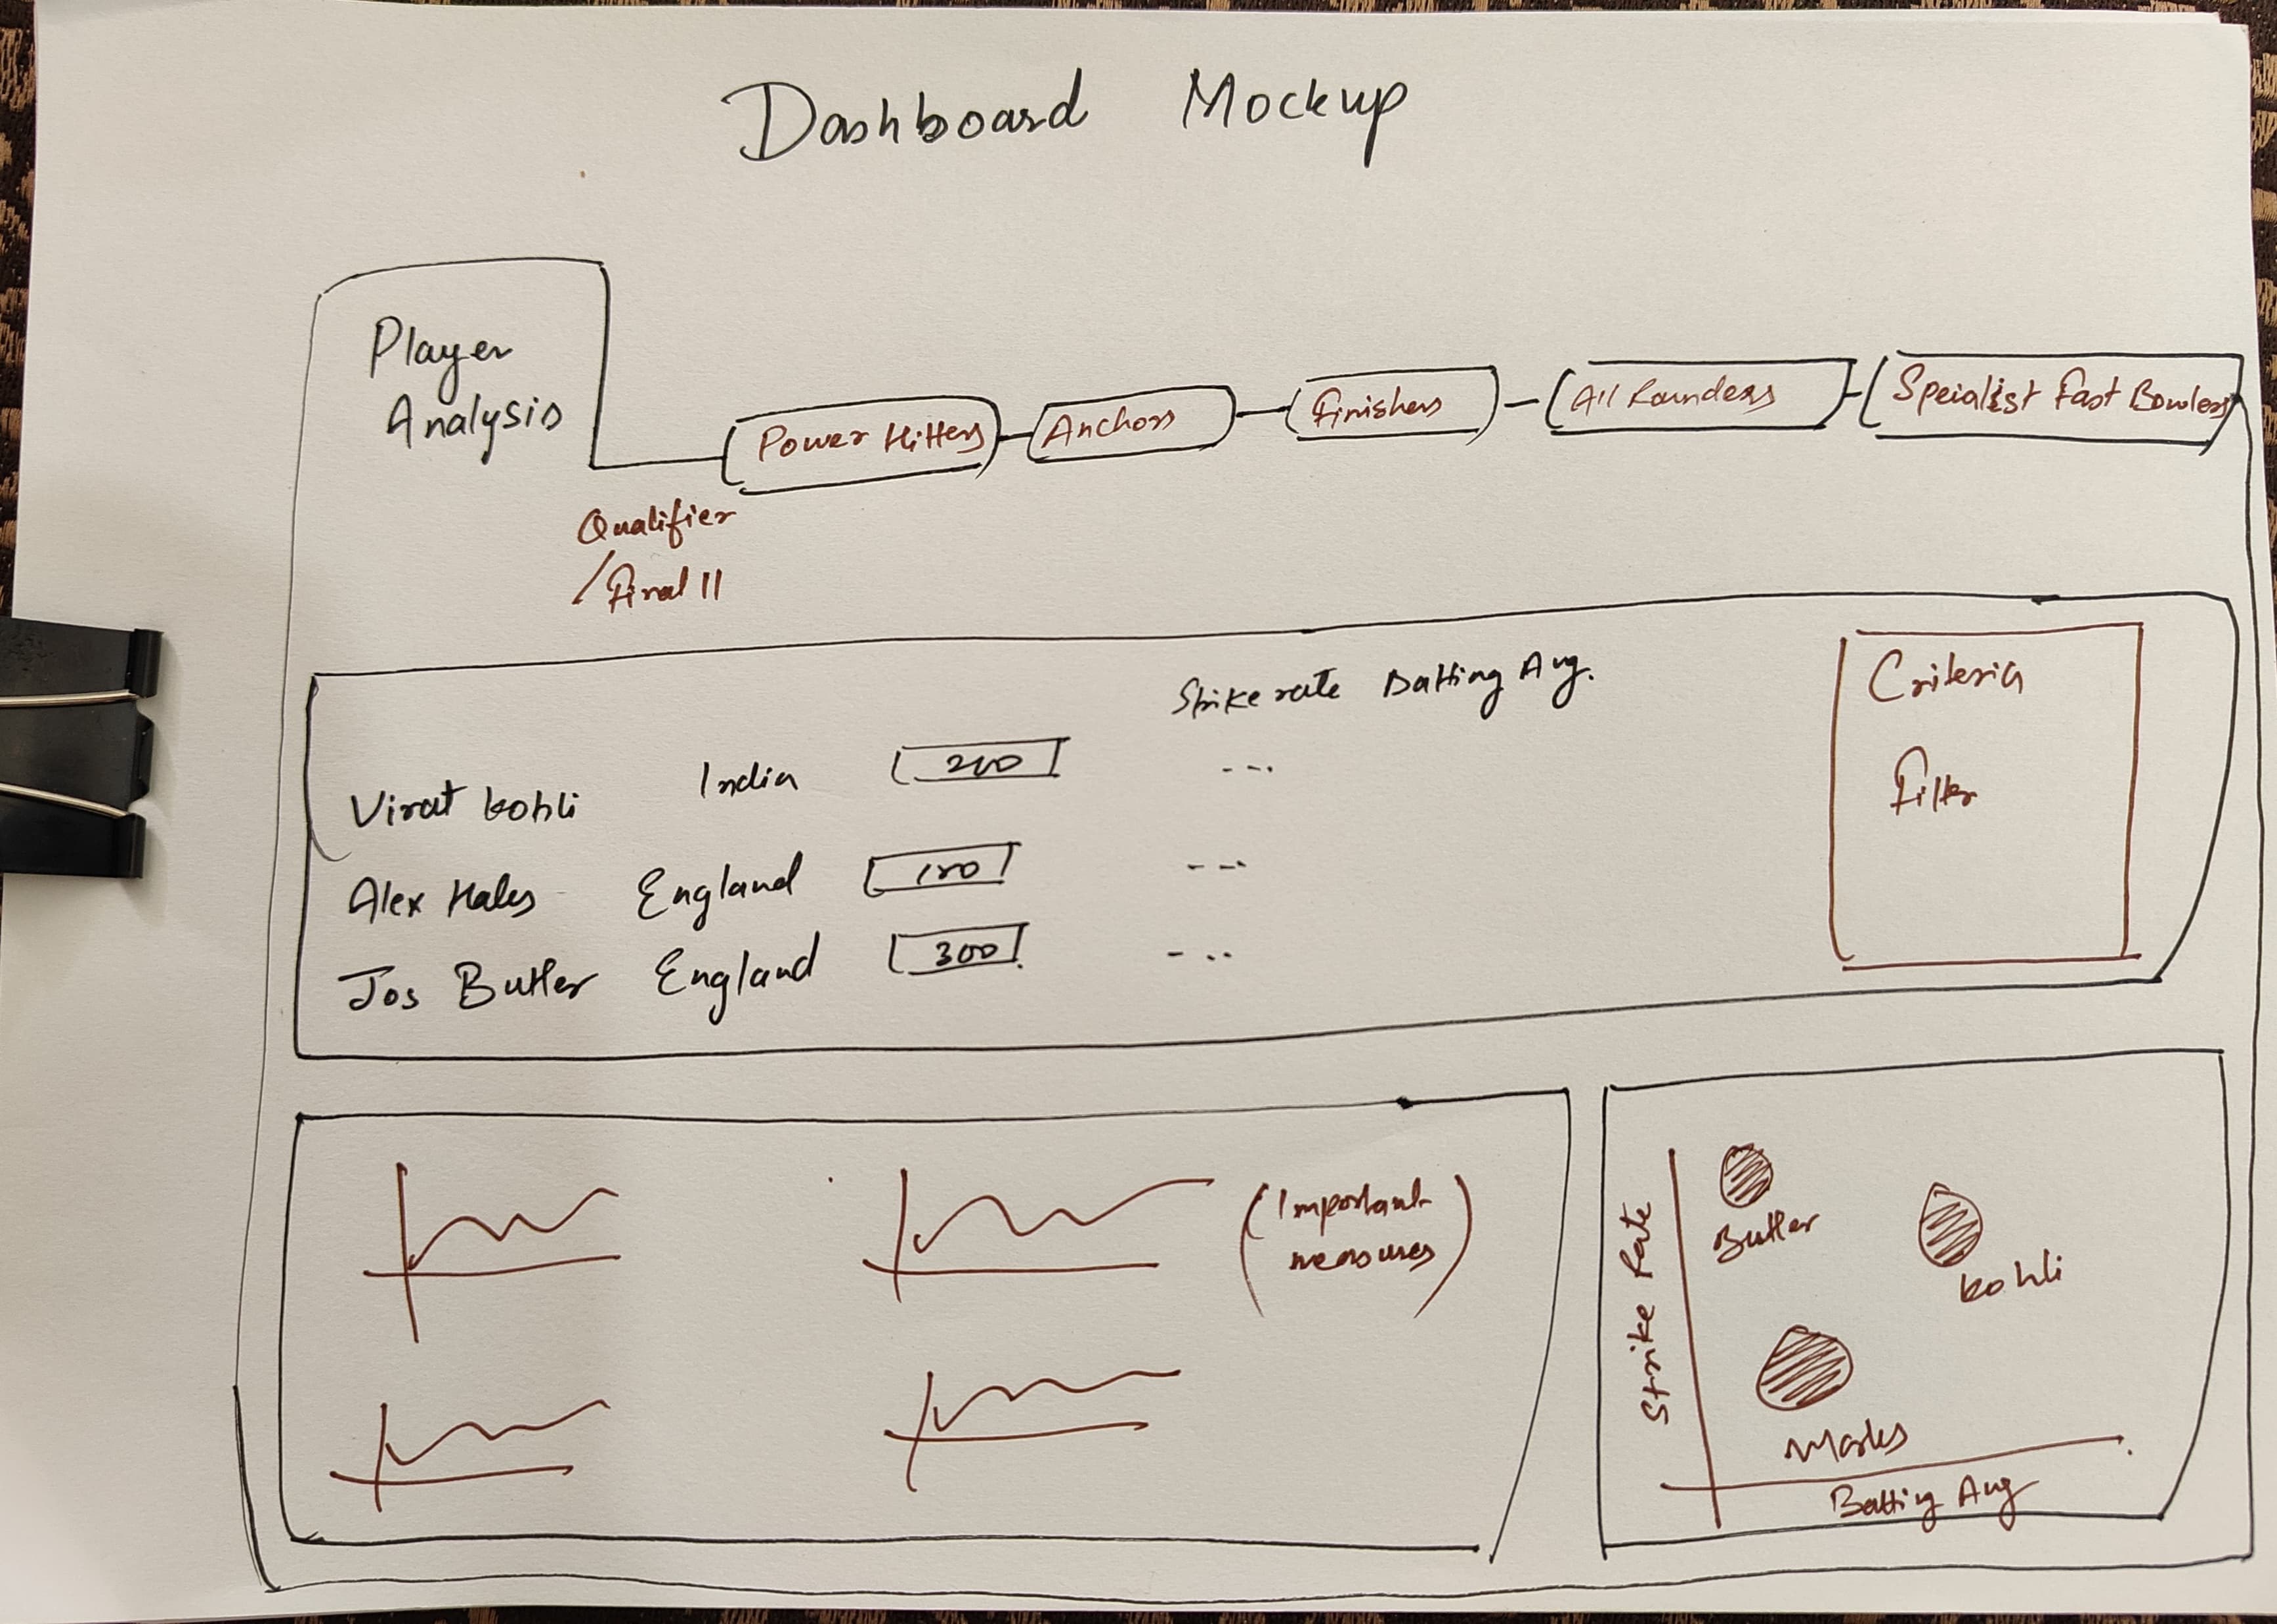 Dashboard Mockup
Player
Analysis
Power Hitters
Anchors
Finishers
All Rounders
Speialist Fast Bowlers
Qualifier
/Final 11
Strike rate Batting Avg.
Criteria
Filter
Virat Kohli India 200
Alex Hales England
Jos Butler England 300
(Important
measures)
Strike Rate
Butler
Kohli
Batting Avg